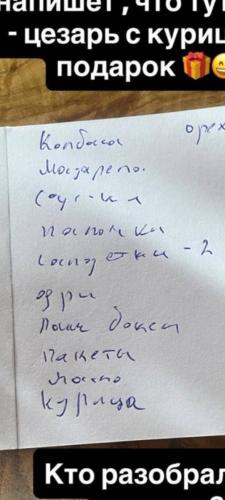 напишет, что тут
- цезарь с куриц
подарок 🎁😄
Колбаса орех
Мацарела
Соус-кл
Салфетки - 2
фри
Ланч боксы
пакеты
масло
курица
Кто разобрал